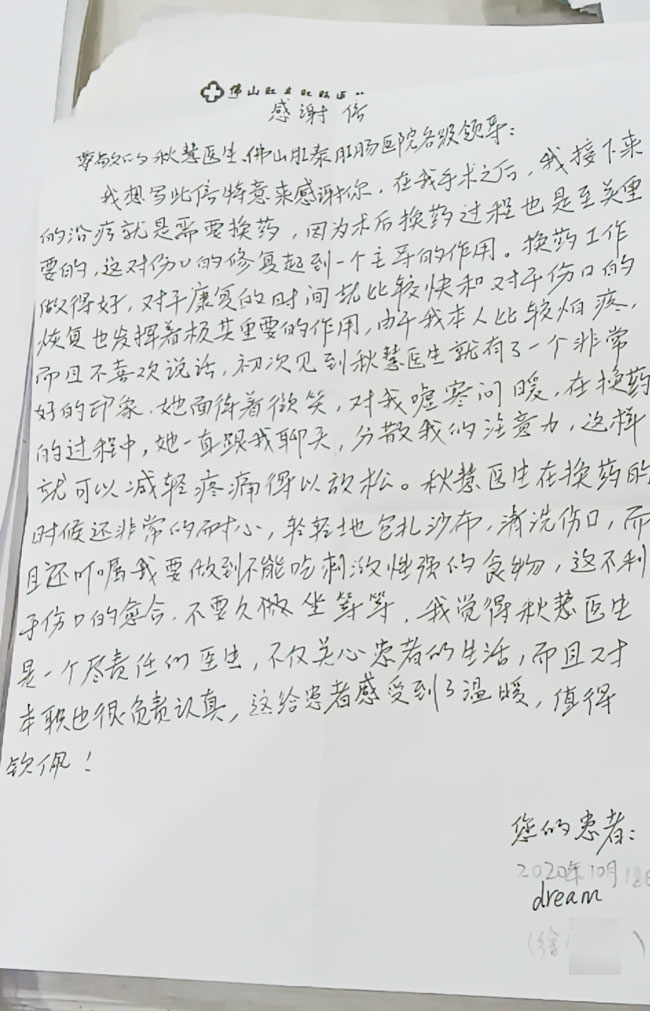 佛山肛泰肛肠医
感谢信
尊敬的秋慧医生、佛山肛泰肛肠医院各级领导：
我想写此信特意来感谢你，在我手术之后，我接下来
的治疗就是需要换药，因为术后换药过程也是至关重
要的，这对伤口的修复起到一个主导的作用。换药工作
做得好，对于康复的时间就比较快和对于伤口的
恢复也发挥着极其重要的作用，由于我本人比较怕疼，
而且不喜欢说话，初次见到秋慧医生就有了一个非常
好的印象，她面待着微笑，对我嘘寒问暖，在换药
的过程中，她一直跟我聊天，分散我的注意力，这样
就可以减轻疼痛得以放松。秋慧医生在换药的
时候还非常的耐心，轻轻地包扎沙布，清洗伤口，而
且还叮嘱我要做到不能吃刺激性强的食物，这不利
于伤口的愈合，不要久做坐等等，我觉得秋慧医生
是一个尽责任们医生，不仅关心患者的生活，而且对
本职也很负责认真，这给患者感受到了温暖，值得
钦佩！
您的患者：
2020年10月18日
dream
（徐 ）